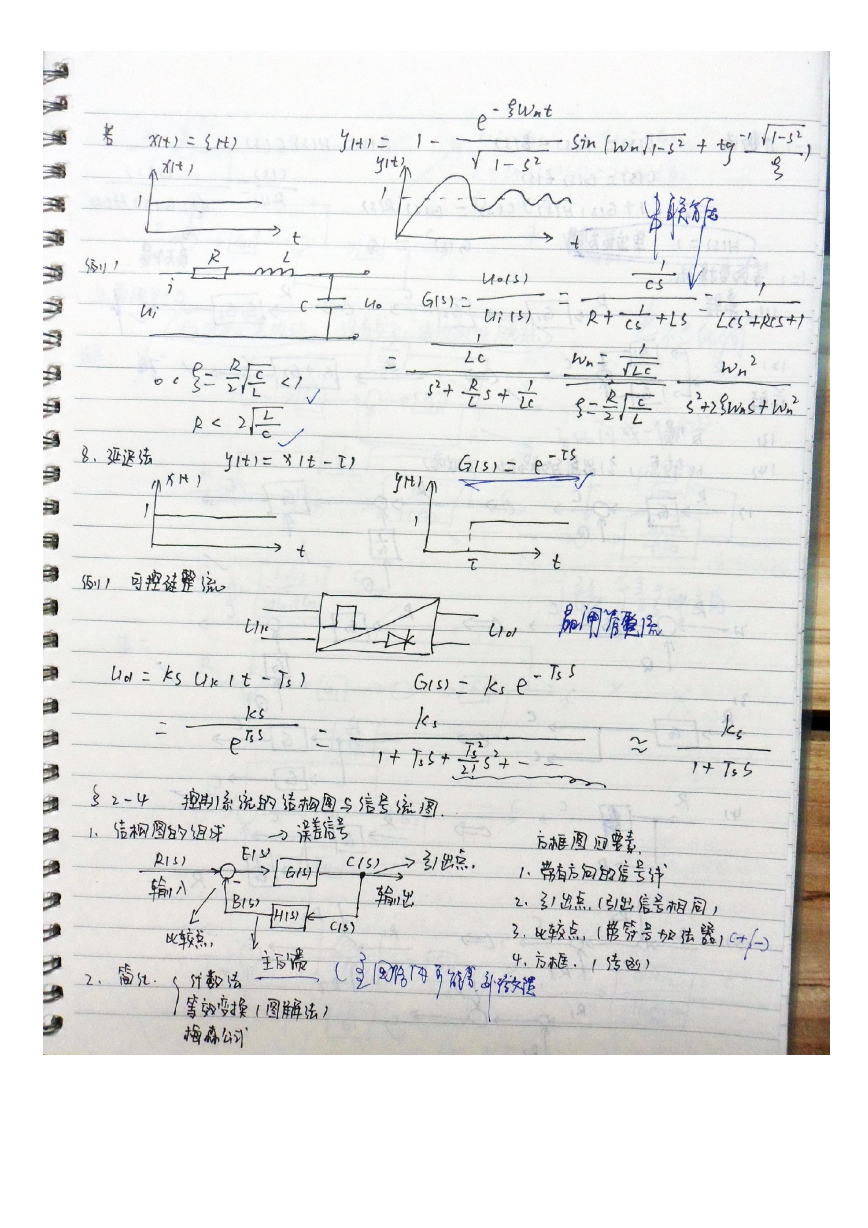 若 x(t) = ξ(t) y(t) = 1 - e^{-ξWnt} / √1-ξ² sin (Wn√1-ξ² + tg⁻¹ √1-ξ² / ξ)
x(t) 1 t y(t) 1 t
例1) R L i Ui C Uo G(s) = Uo(s) / Ui(s) = 1/Cs / (R + 1/Cs + LS) = 1 / (LCS²+RCS+1)
= 1/LC / (S² + R/L S + 1/LC) Wn = 1/√LC ξ = R/2 √C/L Wn² / (S²+2ξWnS+Wn²)
0< ξ = R/2 √C/L <1 ✓
R < 2√L/C ✓
8. 延迟法 y(t) = x(t-τ) G(s) = e^{-τs}
x(t) 1 t y(t) 1 τ t
例1) 可控硅整流
Uk Ud 晶闸管整流
Ud = Ks Uk (t - Ts) G(s) = Ks e^{-TsS}
= Ks / e^{TsS} = Ks / (1 + TsS + Ts²/2! S² + ---) ≈ Ks / (1+TsS)
§2-4 控制系统的结构图与信号流图.
1. 结构图的组成 → 误差信号
R(s) 输入 E(s) G(s) C(s) 引出点. 输出
- B(s) H(s) C(s)
比较点. 主反馈
方框图四要素.
1. 带有方向的信号线
2. 引出点. (引出信号相同)
3. 比较点. (带符号加法器) (+/-)
4. 方框. (传函)
2. 简化. { 代数法
等效变换 (图解法)
梅森公式